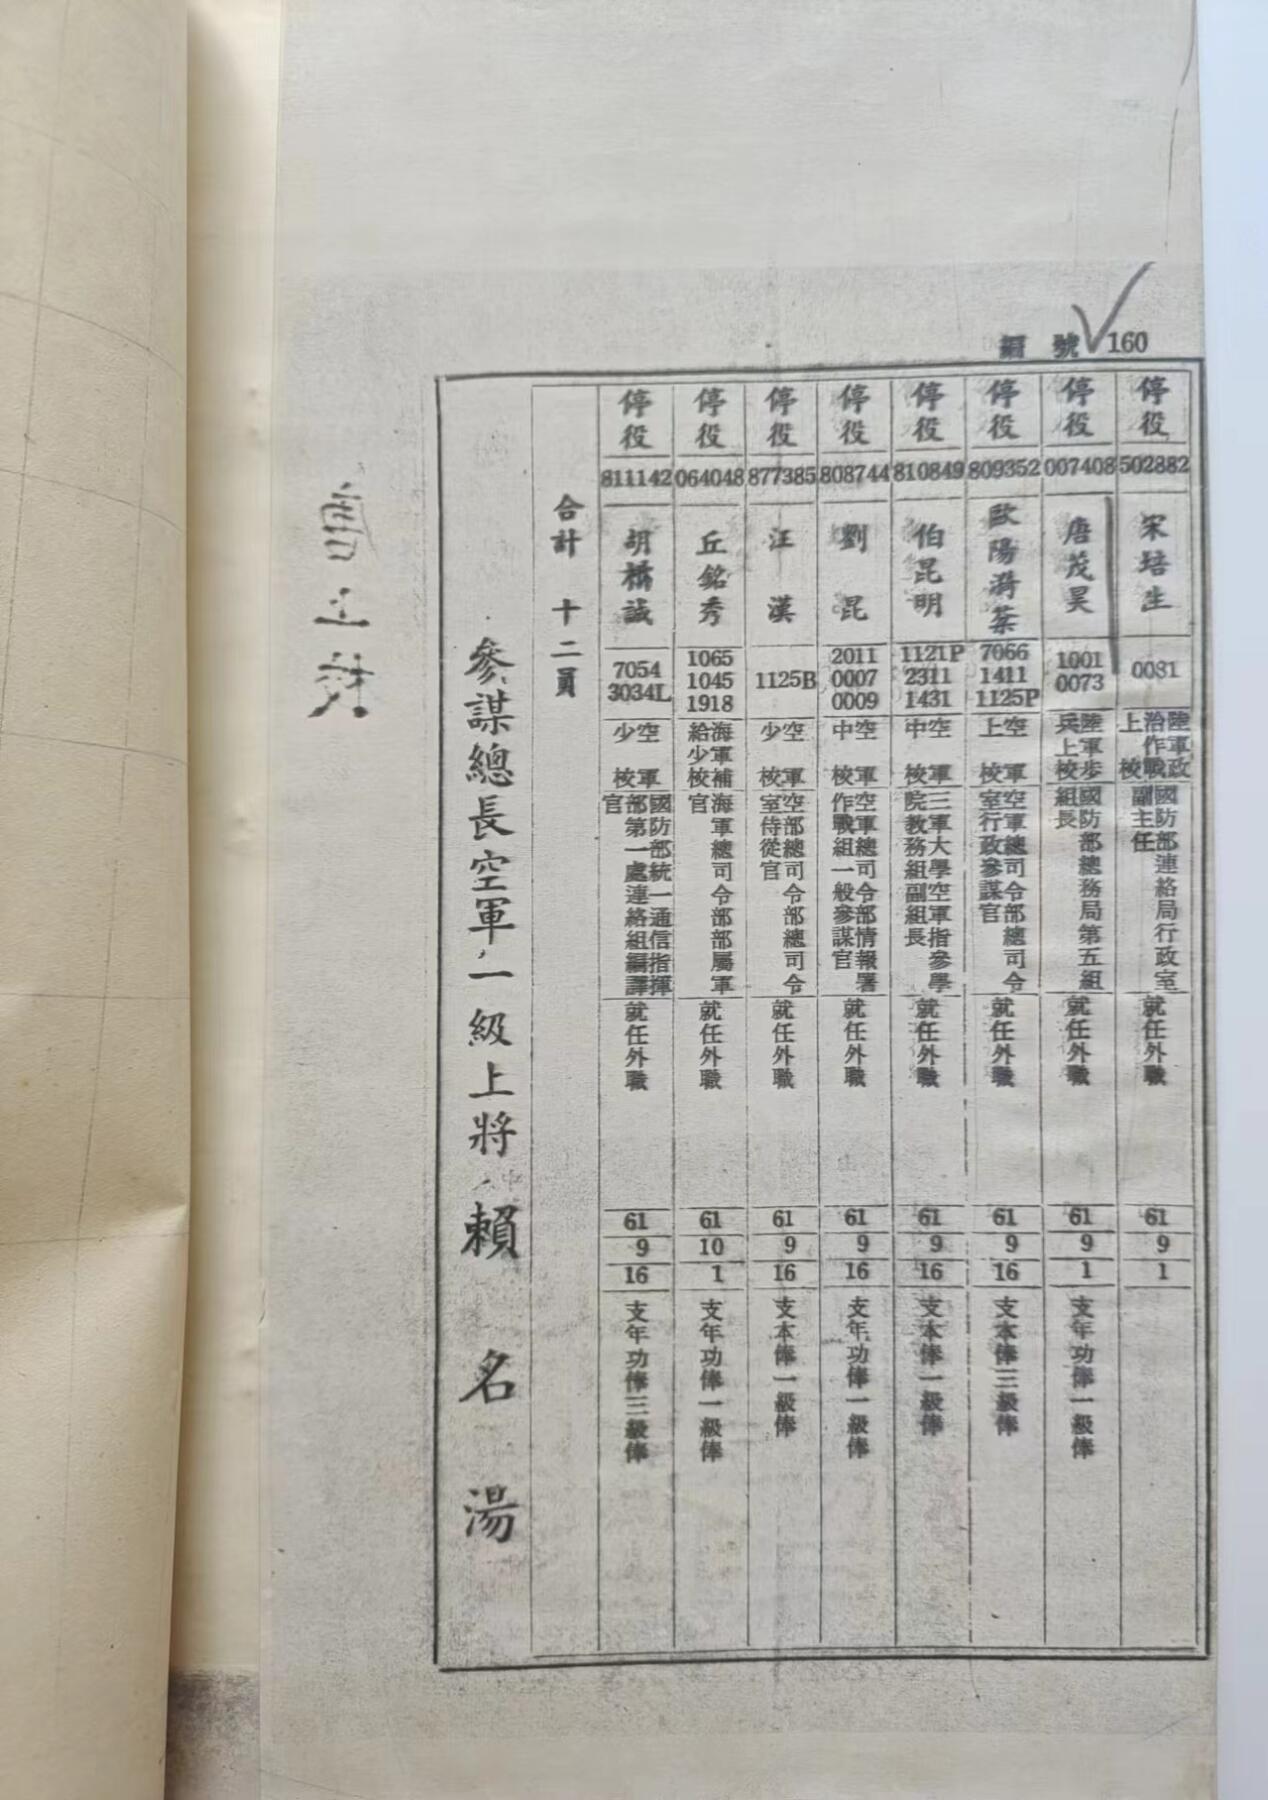 編號 160
停役 502882 宋培生 0081 陸軍政治作戰上校 國防部連絡局行政室副主任 就任外職 61 9 1
停役 007408 唐茂昊 1001 0073 陸軍步兵上校 國防部總務局第五組組長 就任外職 61 9 1 支年功俸一級俸
停役 809352 歐陽漪棻 7066 1411 1125P 空軍上校 空軍總司令部總司令室行政參謀官 就任外職 61 9 16 支本俸三級俸
停役 810849 伯昆明 1121P 2311 1431 空軍中校 三軍大學空軍指參學院教務組副組長 就任外職 61 9 16 支本俸一級俸
停役 808744 劉昆 2011 0007 0009 空軍中校 空軍總司令部情報署作戰組一般參謀官 就任外職 61 9 16 支年功俸一級俸
停役 877385 汪漢 1125B 空軍少校 空部總司令部總司令室侍從官 就任外職 61 9 16 支本俸一級俸
停役 064048 丘銘秀 1065 1045 1918 海軍補給少校 海軍總司令部部屬軍官 就任外職 61 10 1 支年功俸一級俸
停役 811142 胡橋誠 7054 3034L 空軍少校 國防部統一通信指揮部第一處連絡組編譯官 就任外職 61 9 16 支年功俸三級俸
合計 十二員
參謀總長空軍一級上將 賴名湯